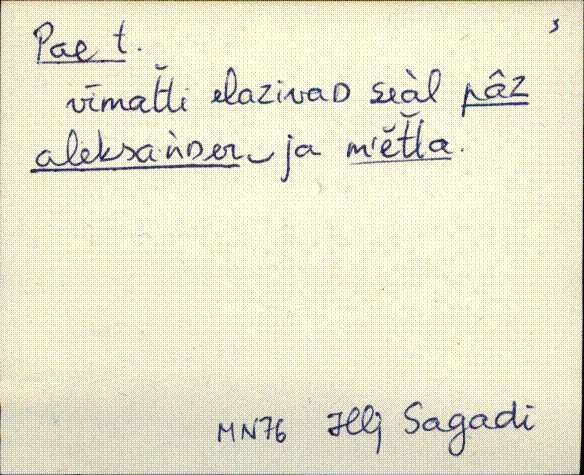 s
Pae t.
vīmat̆t̆i elazivaD seàl pâz
aleksaǹDer ja m'ĕt̆t̆a.
MN76 Hlj Sagadi